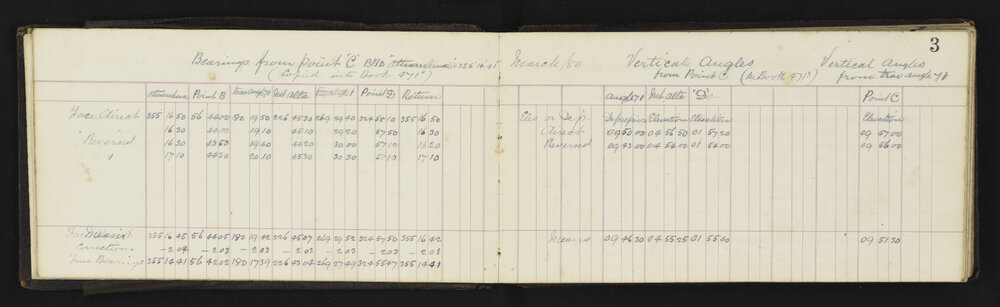 3
Bearings from point "C" March/80
(Copied into Book 471")
Point B Point D Return
Face Direct 355 16 50 56 44 00 180 19 50 226 45 30 269 29 40 324 58 10 355 16 50
16 30 44 00 19 10 45 10 29 20 57 50 16 30
Reversed 16 30 43 50 19 40 44 20 30 00 57 10 16 20
" 17 10 44 30 20 10 45 30 30 30 58 10 17 10
355 16 45 56 44 05 180 19 42 226 45 07 269 29 52 324 57 50 355 16 42
Corrections - 2 04 - 2 03 - 2 03 - 2 03 - 2 03 - 2 03 - 2 01
True Bearings 355 14 41 56 42 02 180 17 39 226 43 04 269 27 49 324 55 47 355 14 41
Vertical Angles Vertical Angles
from Point C from trav angle 71
angle 71 "D" Point C
Elev or Dep. Depression Elevation Elevation Elevation
Direct 09 50 00 04 56 50 01 57 20 09 47 00
Reversed 09 43 00 04 54 00 01 54 00 09 56 00
Means 09 46 30 04 55 25 01 55 40 09 51 30